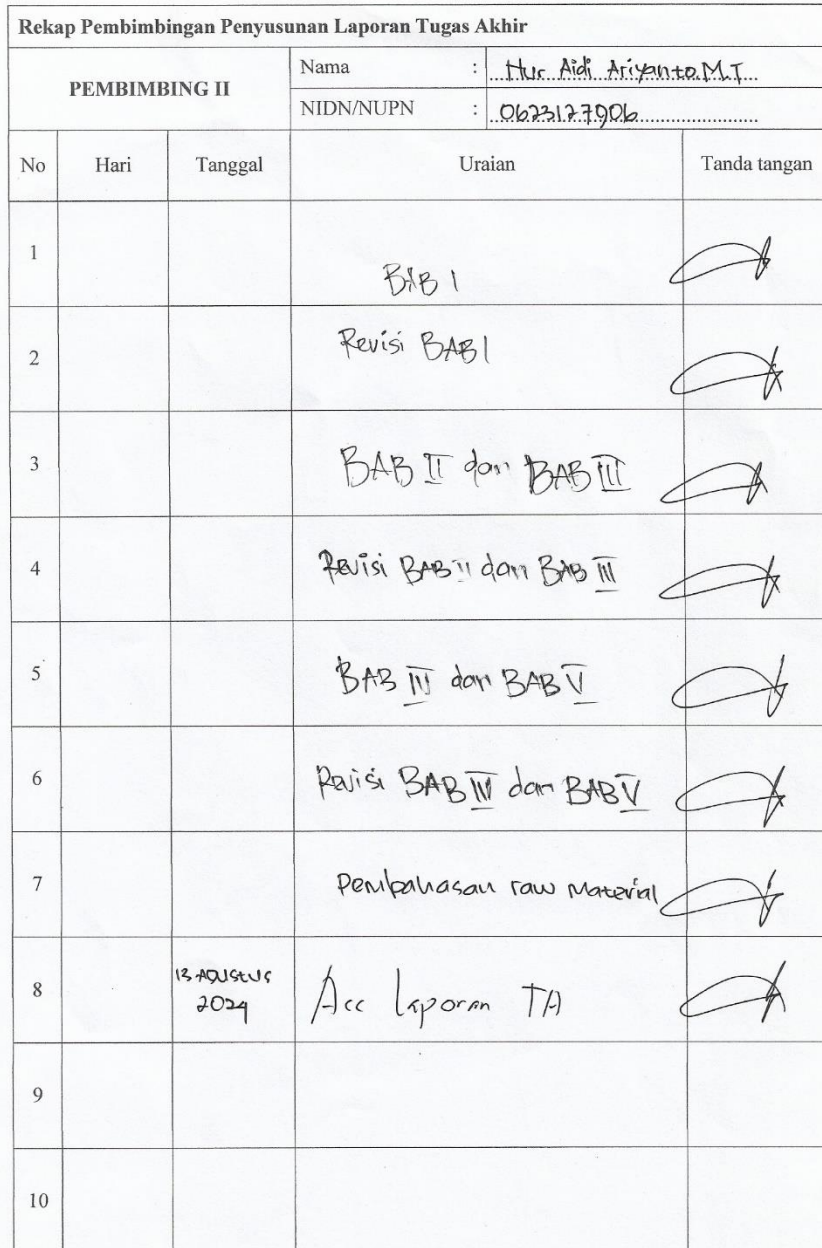 Rekap Pembimbingan Penyusunan Laporan Tugas Akhir
PEMBIMBING II
Nama : Nur Aidi Ariyanto.M.T
NIDN/NUPN : 0623127906
No Hari Tanggal Uraian Tanda tangan
1 BAB I
2 Revisi BAB I
3 BAB II dan BAB III
4 Revisi BAB II dan BAB III
5 BAB IV dan BAB V
6 Revisi BAB IV dan BAB V
7 Pembahasan raw Material
8 13 AGUSTUS 2024 Acc Laporan TA
9
10